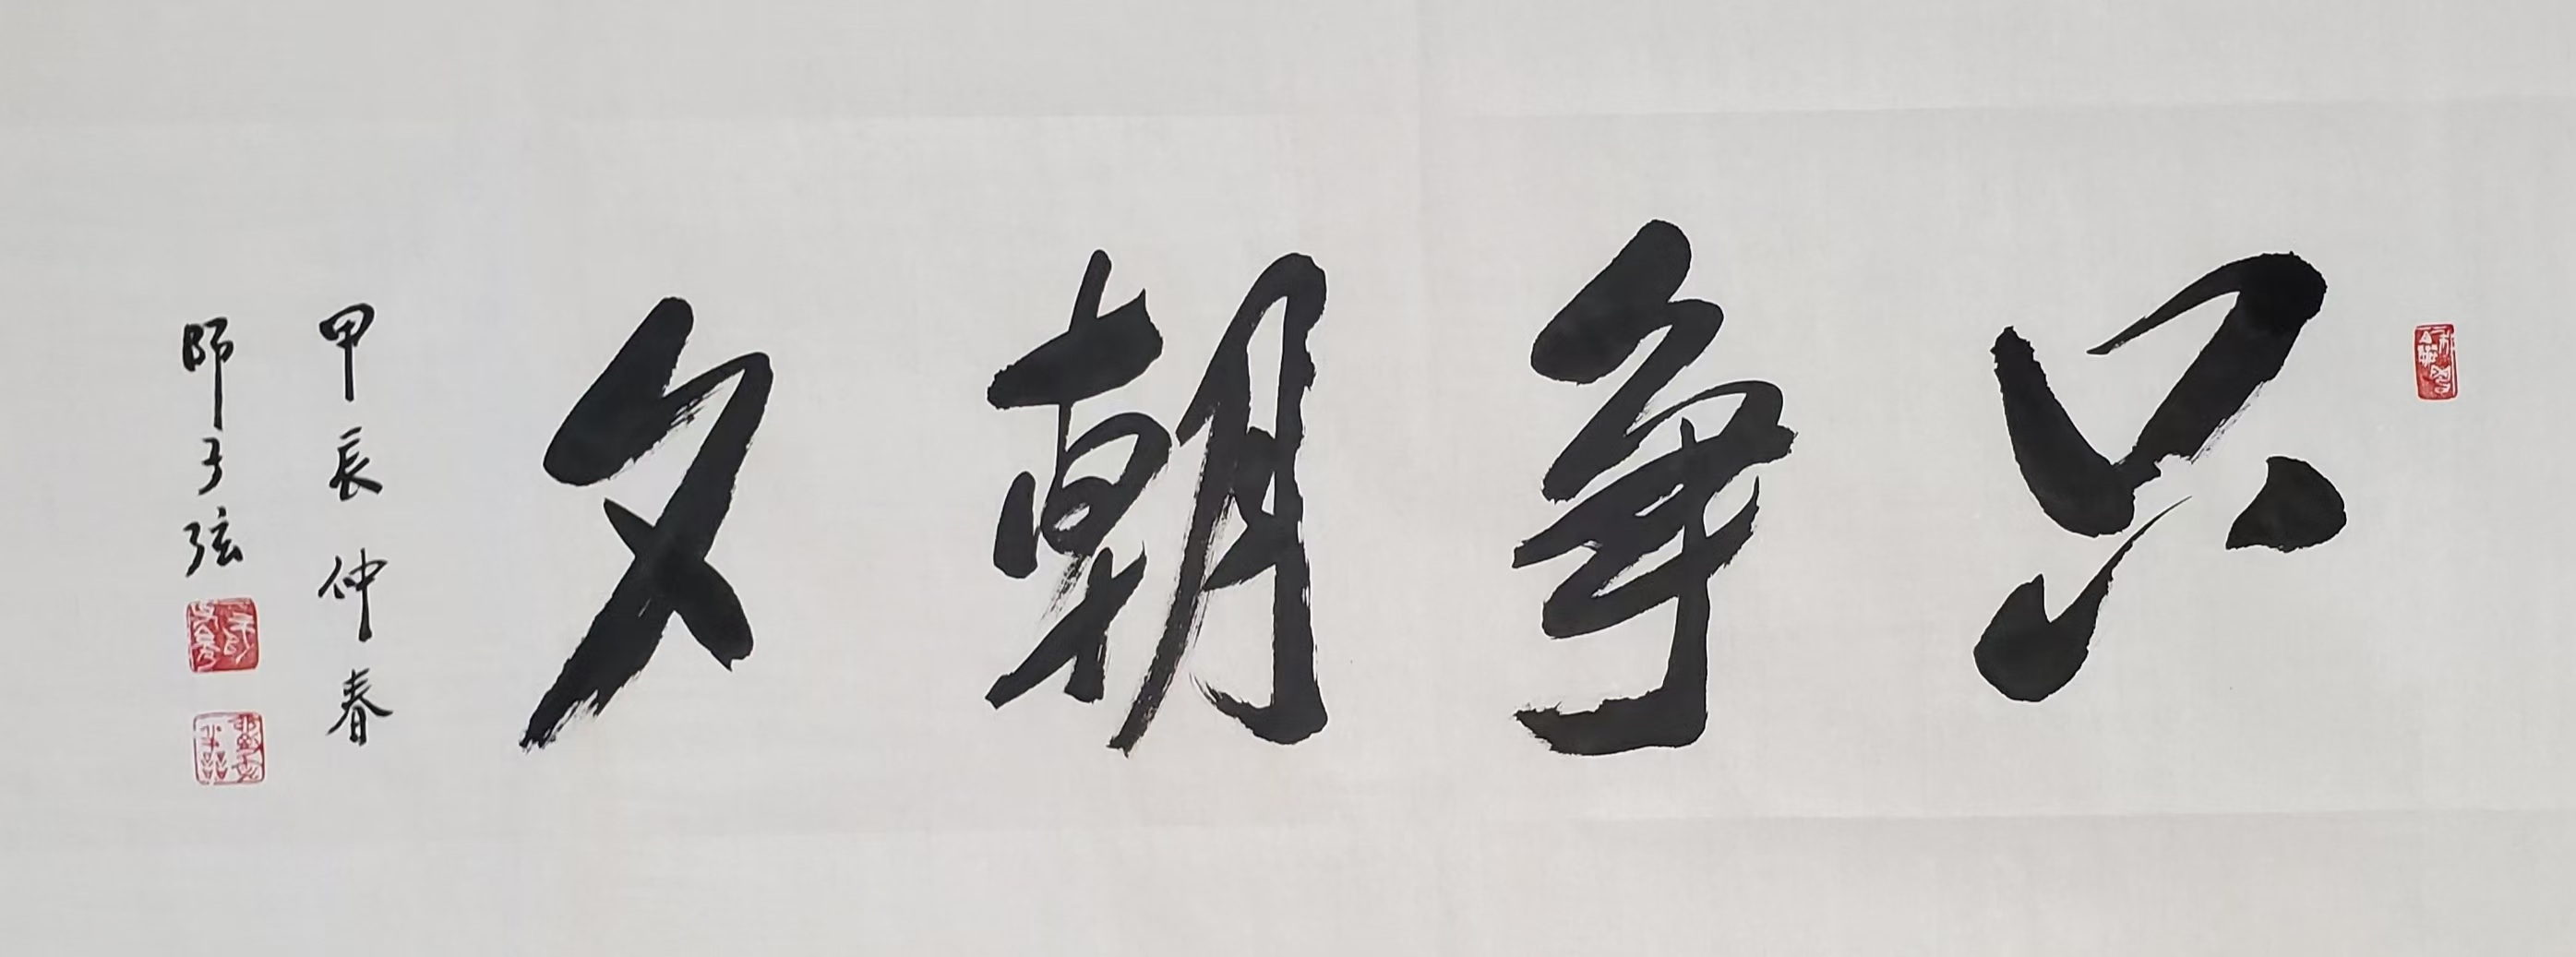 只争朝夕
甲辰仲春
师子弦